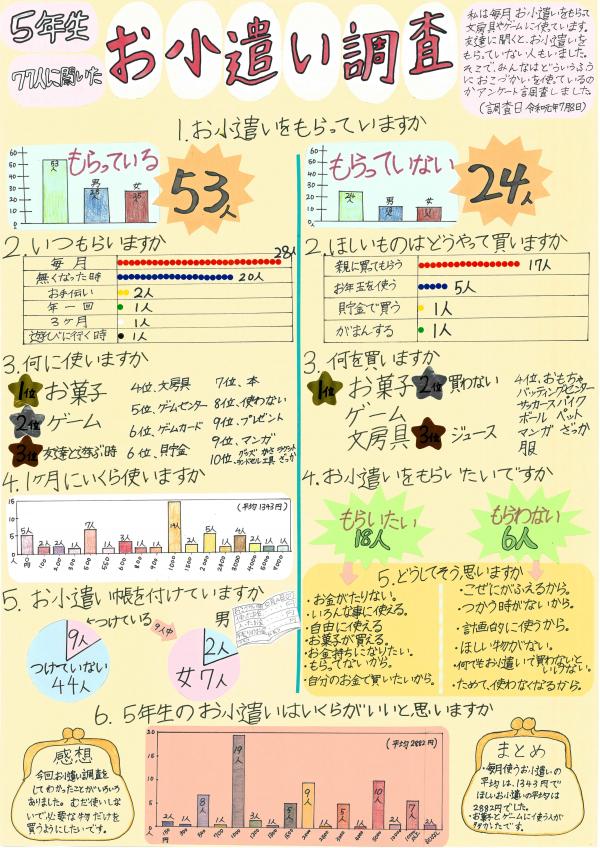 5年生
77人に聞いた
お小遣い調査
私は毎月お小遣いをもらって
文房具やゲームに使っています。
友達に聞くと、お小遣いを
もらっていない人もいました。
そこで、みんなはどういうふう
におこづかいを使っているの
かアンケート調査しました。
(調査日 令和元年7月8日)
1.お小遣いをもらっていますか
もらっている
53人
53人
男
女
もらっていない
24人
24人
男
女
2.いつもらいますか
毎月 28人
無くなった時 20人
お手伝い 2人
年一回 1人
3ヶ月 1人
遊びに行く時 1人
2.ほしいものはどうやって買いますか
親に買ってもらう 17人
お年玉を使う 5人
貯金で買う 1人
がまんする 1人
3.何に使いますか
1位 お菓子
2位 ゲーム
3位 友達と遊ぶ時
4位、文房具
5位、ゲームセンター
6位、ゲームカード
6位、貯金
7位、本
8位、使わない
9位、プレゼント
9位、マンガ
3.何を買いますか
1位 お菓子
ゲーム
文房具
2位 買わない
3位 ジュース
4位、おもちゃ
バッティングセンター
サッカースパイク
ボール ペット
マンガ ざっか
服
4.1ヶ月にいくら使いますか
(平均1343円)
4.お小遣いをもらいたいですか
もらいたい
18人
もらわない
6人
5.どうしてそう思いますか
・お金がたりない。
・いろんな事に使える。
・自由に使える
・お菓子が買える。
・お金持ちになりたい。
・もらってないから。
・自分のお金で買いたいから。
・こぜにがふえるから。
・つかう時がないから。
・計画的に使うから。
・ほしい物がない。
・何でもお小遣いで買わないと
いけない。
・ためて、使わなくなるから。
5.お小遣い帳を付けていますか
9人
つけている
つけていない
44人
9人中
男
2人
女7人
6.5年生のお小遣いはいくらがいいと思いますか
(平均2882円)
感想
今回お小遣い調査を
してわかったことがいろいろ
ありました。むだ使いしな
いで必要な物だけを
買うようにしたいです。
まとめ
・毎月使うお小遣いの
平均は、1343円で
ほしいお小遣いの平均は
2882円でした。
・お菓子とゲームに使う人が
多かったです。